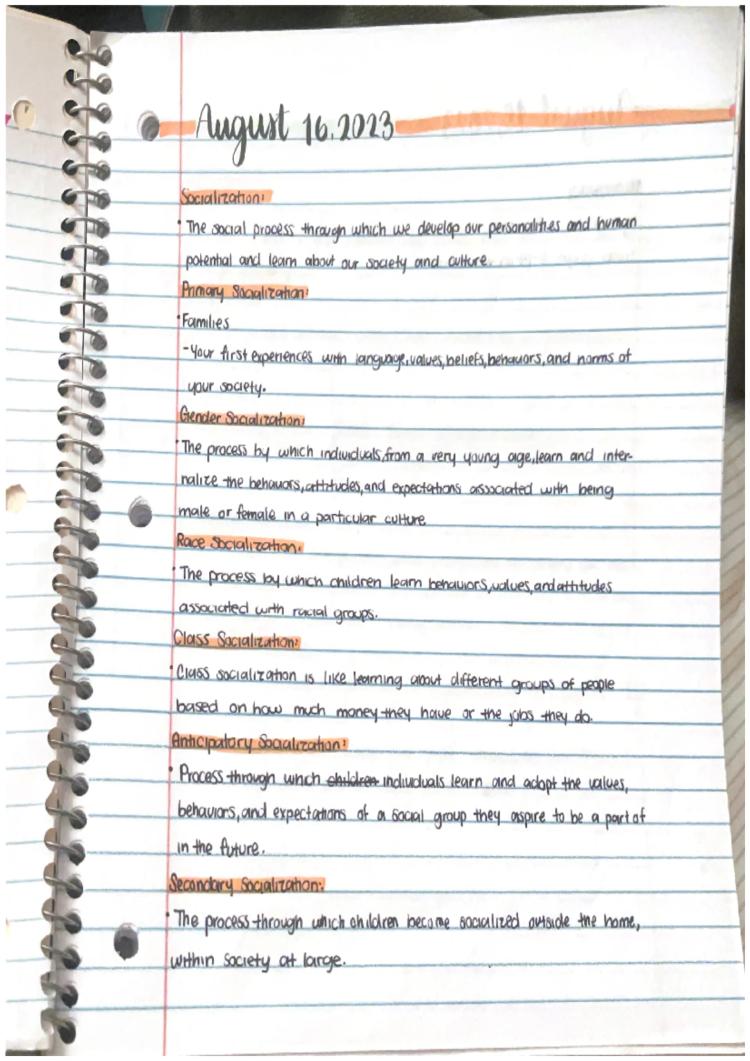 August 16, 2023
Socialization:
• The social process through which we develop our personalities and human
potential and learn about our society and culture.
Primary Socialization:
• Families
- Your first experiences with language, values, beliefs, behaviors, and norms of
your society.
Gender Socialization:
• The process by which individuals, from a very young age, learn and inter-
nalize the behaviors, attitudes, and expectations associated with being
male or female in a particular culture.
Race Socialization:
• The process by which children learn behaviors, values, and attitudes
associated with racial groups.
Class Socialization:
• Class socialization is like learning about different groups of people
based on how much money they have or the jobs they do.
Anticipatory Socialization:
• Process through which children individuals learn and adopt the values,
behaviors, and expectations of a social group they aspire to be a part of
in the future.
Secondary Socialization:
• The process through which children become socialized outside the home,
within society at large.